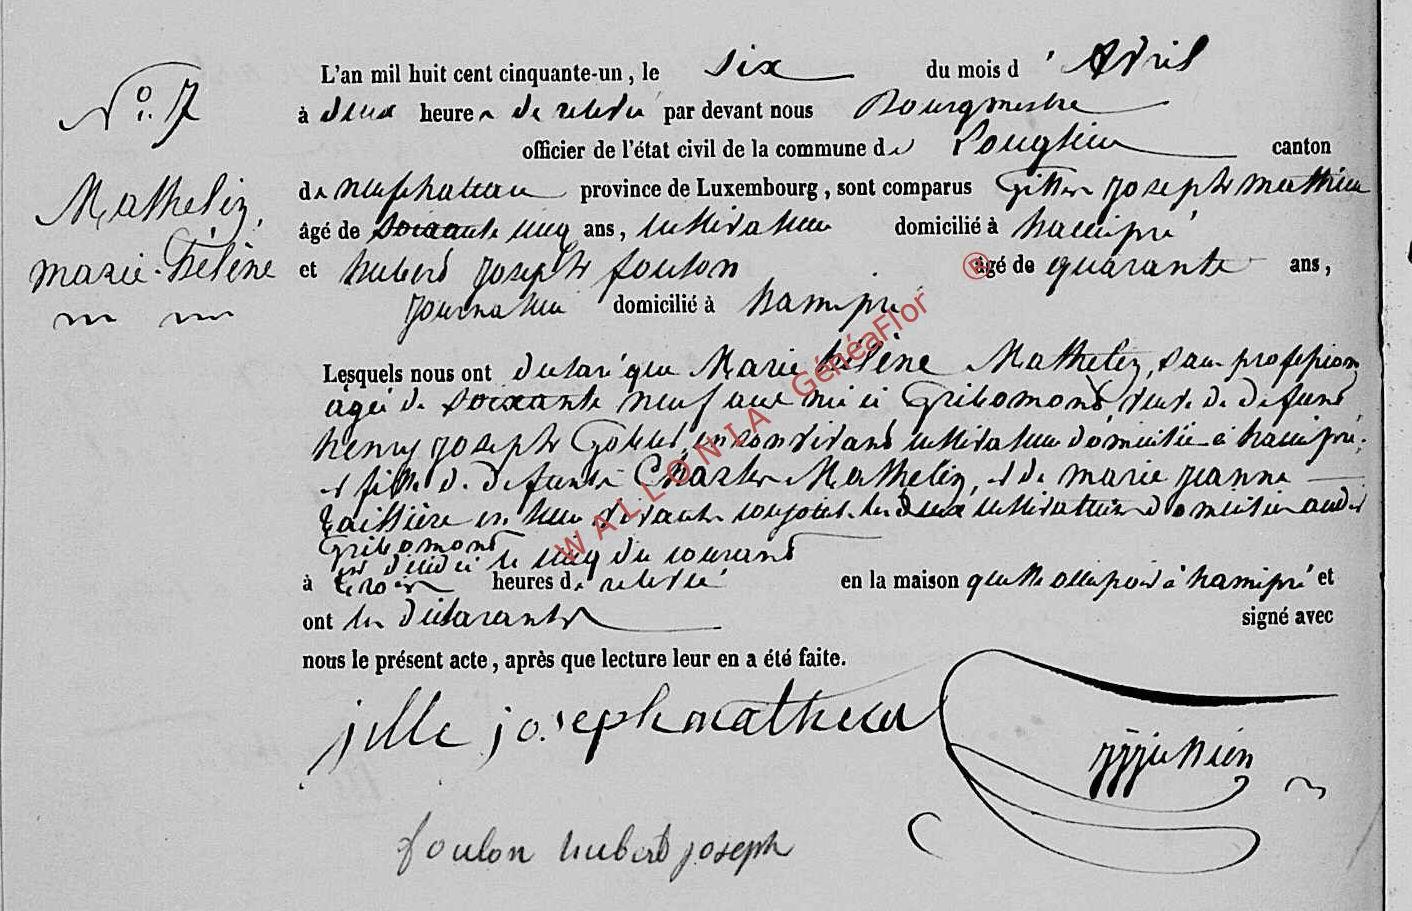 N°. 7
Mathelin,
marie-hélène
L'an mil huit cent cinquante-un, le six du mois d'Avril
à deux heures de relevée par devant nous Bourgmestre
officier de l'état civil de la commune de Longlier canton
de neufchateau province de Luxembourg, sont comparus Gilles joseph mathieu
âgé de soixante cinq ans, cultivateur domicilié à hamipré
et hubert joseph foulon âgé de quarante ans,
journalier domicilié à hamipré
Lesquels nous ont déclaré que Marie hélène Mathelin, sans profession
âgée de soixante neuf ans née à Gribomont, veuve de défunt
henry joseph en son vivant cultivateur domicilié à hamipré.
et fille de défunts Charles Mathelin, et de marie jeanne
en leur vivant conjoints les deux cultivateurs domiciliés audit
Gribomont
est décédée le cinq du courant
à trois heures de relevée en la maison qu'elle occupoit à hamipré et
ont les déclarants signé avec
nous le présent acte, après que lecture leur en a été faite.
jille joseph mathieu
foulon hubert joseph
WALLONIA GénéaFlor ®